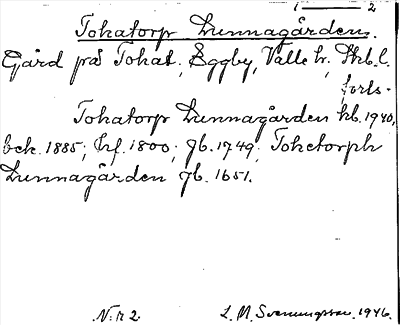 1 — 2
Tohatorp Lunnagården.
Gård på Tohat., Eggby, Valle hr., Skb. l.
forts.
Tohatorp Lunnagården kb. 1940,
bek. 1885; hf. 1800; jb. 1749; Tohetorph
Lunnagården jb. 1651.
N:r 2. L. M. Svenungsson. 1946.